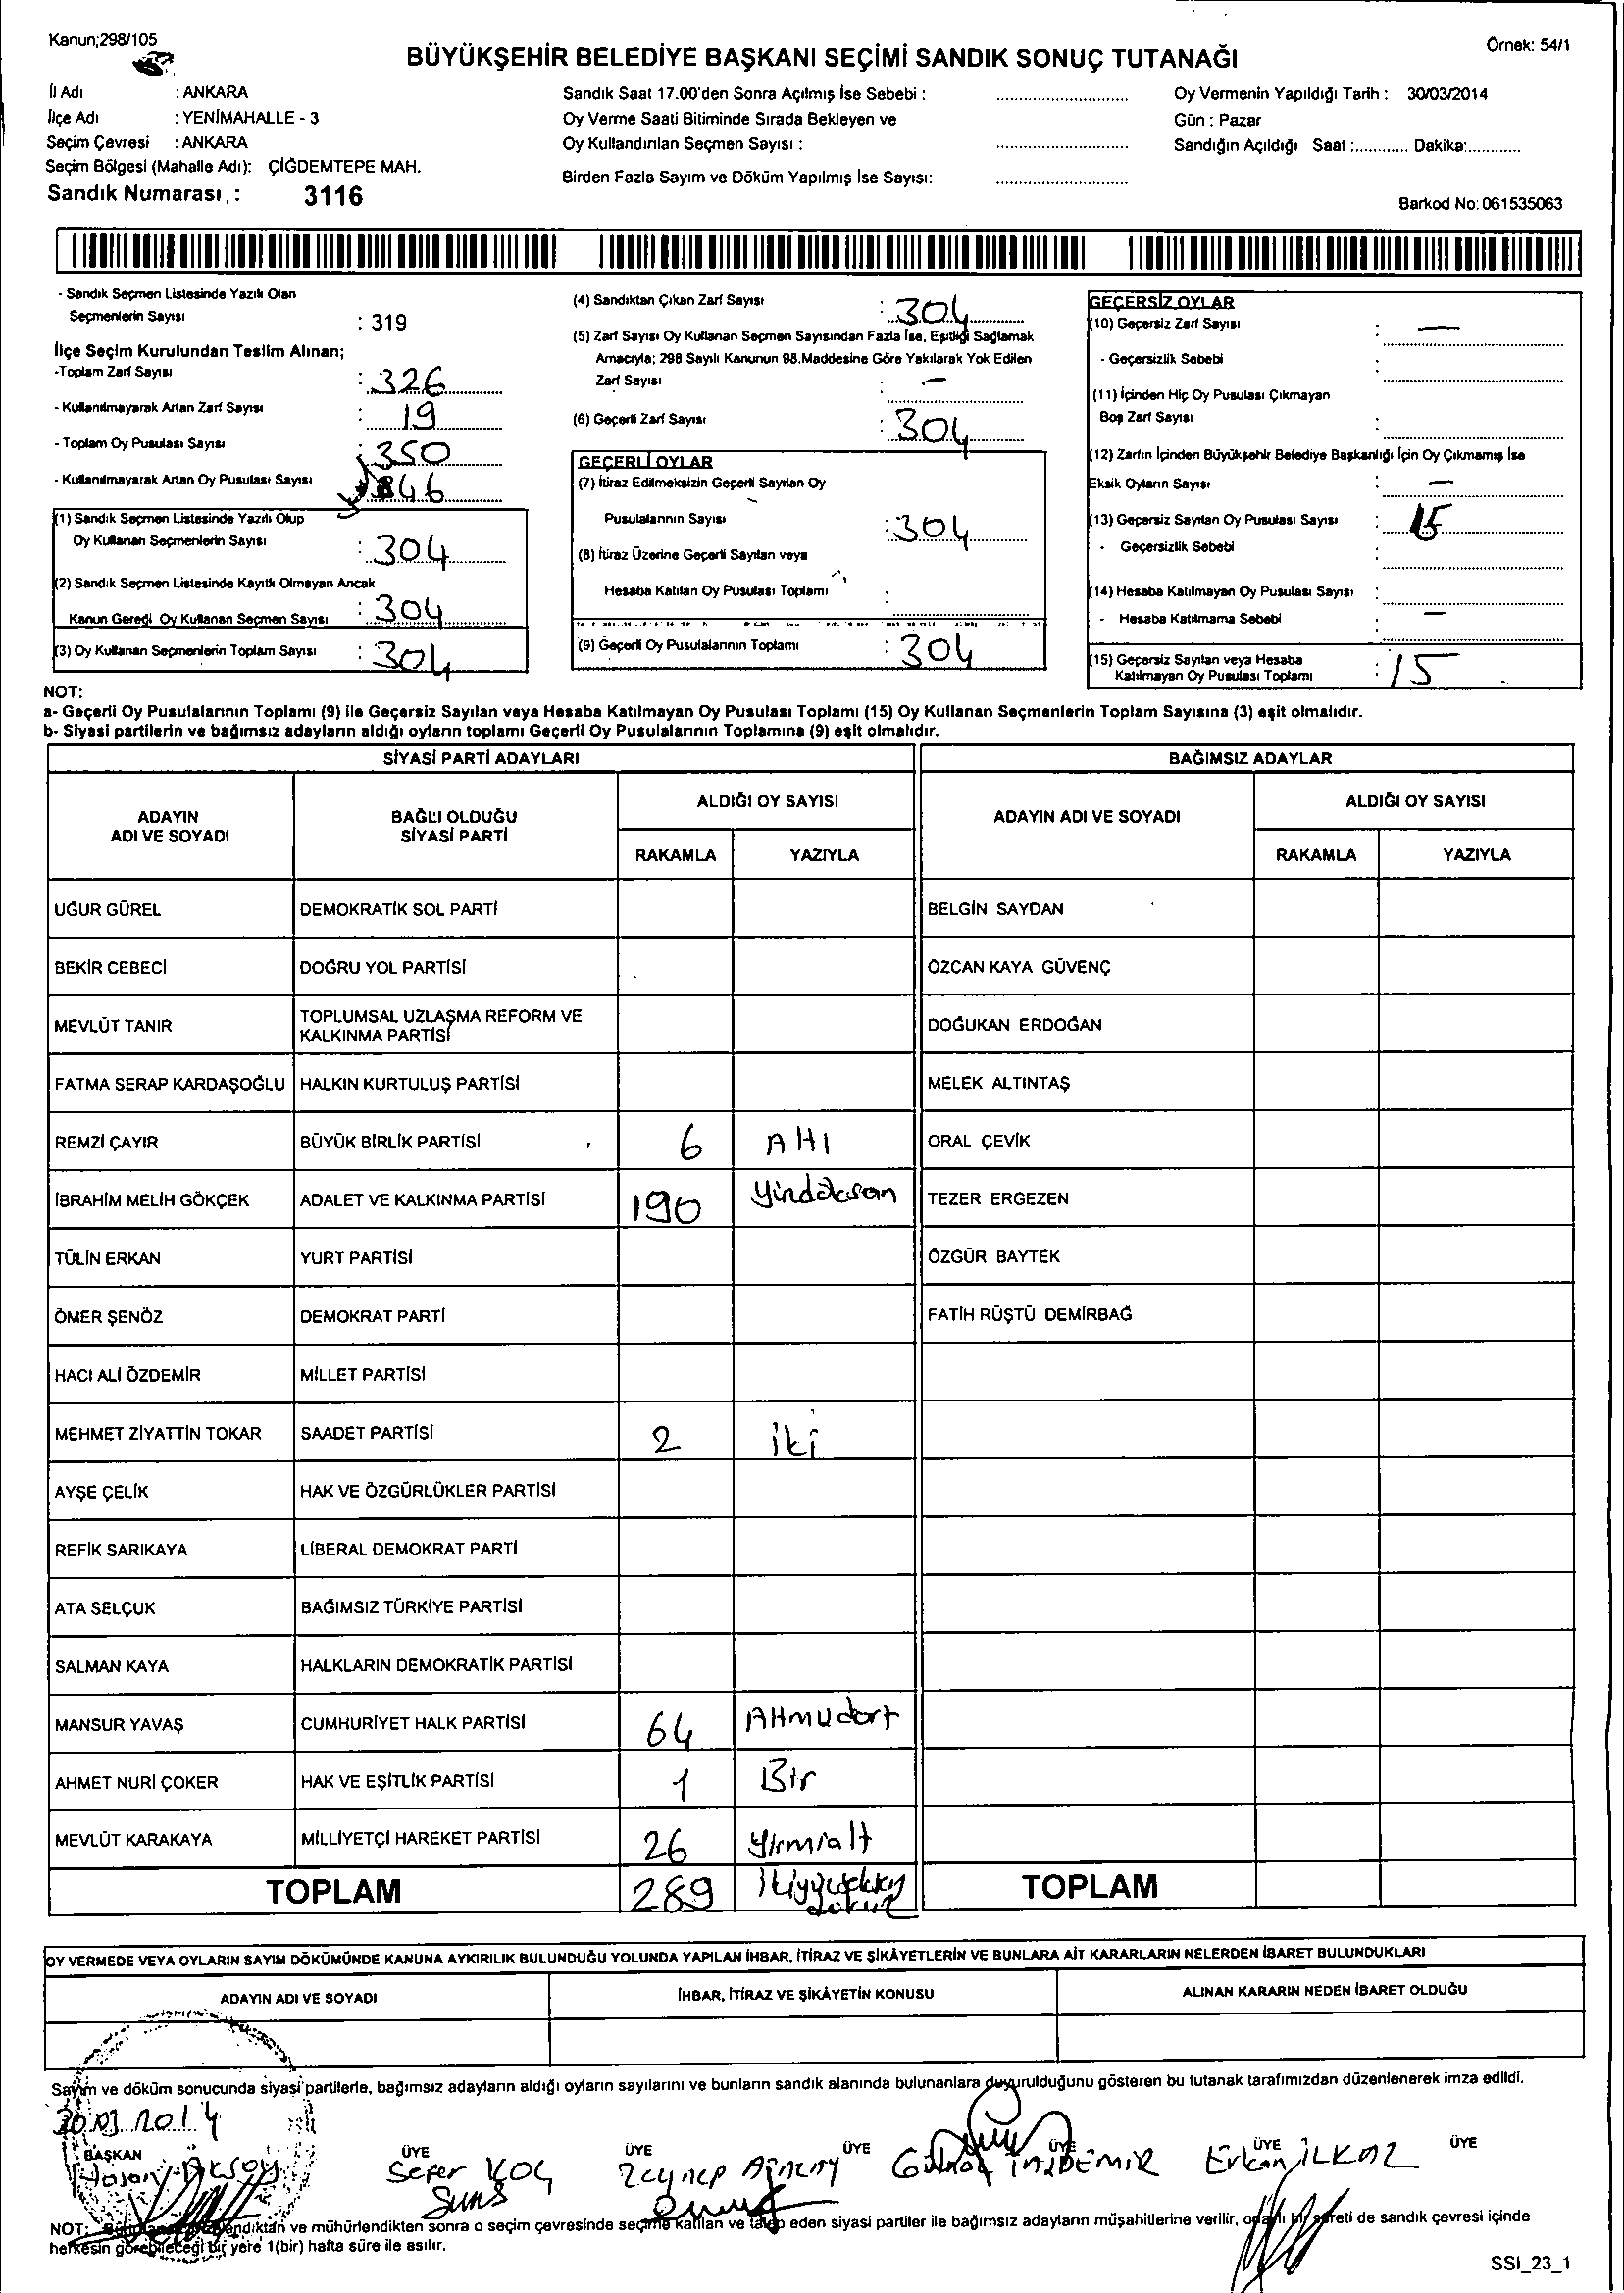 Kanun;298/105
BÜYÜKŞEHİR BELEDİYE BAŞKANI SEÇİMİ SANDIK SONUÇ TUTANAĞI
Örnek: 54/1
İl Adı : ANKARA
İlçe Adı : YENİMAHALLE - 3
Seçim Çevresi : ANKARA
Seçim Bölgesi (Mahalle Adı): ÇİĞDEMTEPE MAH.
Sandık Numarası : 3116
Sandık Saat 17.00'den Sonra Açılmış İse Sebebi :
Oy Verme Saati Bitiminde Sırada Bekleyen ve
Oy Kullandırılan Seçmen Sayısı :
Birden Fazla Sayım ve Döküm Yapılmış İse Sayısı:
Oy Vermenin Yapıldığı Tarih : 30/03/2014
Gün : Pazar
Sandığın Açıldığı Saat :............ Dakika:............
Barkod No: 061535063
- Sandık Seçmen Listesinde Yazılı Olan
Seçmenlerin Sayısı : 319
İlçe Seçim Kurulundan Teslim Alınan;
-Toplam Zarf Sayısı : 326
- Kullanılmayarak Artan Zarf Sayısı : 19
- Toplam Oy Pusulası Sayısı : 350
- Kullanılmayarak Artan Oy Pusulası Sayısı 46
(1) Sandık Seçmen Listesinde Yazılı Olup
Oy Kullanan Seçmenlerin Sayısı : 304
(2) Sandık Seçmen Listesinde Kayıtlı Olmayan Ancak
Kanun Gereği Oy Kullanan Seçmen Sayısı : 304
(3) Oy Kullanan Seçmenlerin Toplam Sayısı : 304
(4) Sandıktan Çıkan Zarf Sayısı : 304
(5) Zarf Sayısı Oy Kullanan Seçmen Sayısından Fazla İse, Eşitliği Sağlamak
Amacıyla; 298 Sayılı Kanunun 98.Maddesine Göre Yakılarak Yok Edilen
Zarf Sayısı : —
(6) Geçerli Zarf Sayısı : 304
GEÇERLİ OYLAR
(7) İtiraz Edilmeksizin Geçerli Sayılan Oy
Pusulalarının Sayısı : 304
(8) İtiraz Üzerine Geçerli Sayılan veya
Hesaba Katılan Oy Pusulası Toplamı :
(9) Geçerli Oy Pusulalarının Toplamı : 304
GEÇERSİZ OYLAR
(10) Geçersiz Zarf Sayısı : —
- Geçersizlik Sebebi :
(11) İçinden Hiç Oy Pusulası Çıkmayan
Boş Zarf Sayısı :
(12) Zarfın İçinden Büyükşehir Belediye Başkanlığı İçin Oy Çıkmamış İse
Eksik Oyların Sayısı : —
(13) Geçersiz Sayılan Oy Pusulası Sayısı : 15
- Geçersizlik Sebebi :
(14) Hesaba Katılmayan Oy Pusulası Sayısı :
- Hesaba Katılmama Sebebi : —
(15) Geçersiz Sayılan veya Hesaba
Katılmayan Oy Pusulası Toplamı : 15
NOT:
a- Geçerli Oy Pusulalarının Toplamı (9) ile Geçersiz Sayılan veya Hesaba Katılmayan Oy Pusulası Toplamı (15) Oy Kullanan Seçmenlerin Toplam Sayısına (3) eşit olmalıdır.
b- Siyasi partilerin ve bağımsız adayların aldığı oyların toplamı Geçerli Oy Pusulalarının Toplamına (9) eşit olmalıdır.
SİYASİ PARTİ ADAYLARI BAĞIMSIZ ADAYLAR
ADAYIN ADI VE SOYADI BAĞLI OLDUĞU SİYASİ PARTİ ALDIĞI OY SAYISI ADAYIN ADI VE SOYADI ALDIĞI OY SAYISI
RAKAMLA YAZIYLA RAKAMLA YAZIYLA
UĞUR GÜREL DEMOKRATİK SOL PARTİ BELGİN SAYDAN
BEKİR CEBECİ DOĞRU YOL PARTİSİ ÖZCAN KAYA GÜVENÇ
MEVLÜT TANIR TOPLUMSAL UZLAŞMA REFORM VE KALKINMA PARTİSİ DOĞUKAN ERDOĞAN
FATMA SERAP KARDAŞOĞLU HALKIN KURTULUŞ PARTİSİ MELEK ALTINTAŞ
REMZİ ÇAYIR BÜYÜK BİRLİK PARTİSİ 6 AHI ORAL ÇEVİK
İBRAHİM MELİH GÖKÇEK ADALET VE KALKINMA PARTİSİ 190 Yüzdoksan TEZER ERGEZEN
TÜLİN ERKAN YURT PARTİSİ ÖZGÜR BAYTEK
ÖMER ŞENÖZ DEMOKRAT PARTİ FATİH RÜŞTÜ DEMİRBAĞ
HACI ALİ ÖZDEMİR MİLLET PARTİSİ
MEHMET ZİYATTİN TOKAR SAADET PARTİSİ 2 iki
AYŞE ÇELİK HAK VE ÖZGÜRLÜKLER PARTİSİ
REFİK SARIKAYA LİBERAL DEMOKRAT PARTİ
ATA SELÇUK BAĞIMSIZ TÜRKİYE PARTİSİ
SALMAN KAYA HALKLARIN DEMOKRATİK PARTİSİ
MANSUR YAVAŞ CUMHURİYET HALK PARTİSİ 64 Altmıdort
AHMET NURİ ÇOKER HAK VE EŞİTLİK PARTİSİ 1 Bir
MEVLÜT KARAKAYA MİLLİYETÇİ HAREKET PARTİSİ 26 Yirmialt
TOPLAM 289 TOPLAM
OY VERMEDE VEYA OYLARIN SAYIM DÖKÜMÜNDE KANUNA AYKIRILIK BULUNDUĞU YOLUNDA YAPILAN İHBAR, İTİRAZ VE ŞİKÂYETLERİN VE BUNLARA AİT KARARLARIN NELERDEN İBARET BULUNDUKLARI
ADAYIN ADI VE SOYADI İHBAR, İTİRAZ VE ŞİKÂYETİN KONUSU ALINAN KARARIN NEDEN İBARET OLDUĞU
Sayım ve döküm sonucunda siyasi partilerle, bağımsız adayların aldığı oyların sayılarını ve bunların sandık alanında bulunanlara duyurulduğunu gösteren bu tutanak tarafımızdan düzenlenerek imza edildi.
30.03.2014
BAŞKAN ÜYE ÜYE ÜYE ÜYE ÜYE ÜYE
Hasan Aksoy Sefer KOÇ Zeynep Erkan İLKAZ
NOT: ve mühürlendikten sonra o seçim çevresinde seçime katılan ve talep eden siyasi partiler ile bağımsız adayların müşahitlerine verilir, onaylı bir sureti de sandık çevresi içinde
herkesin görebileceği bir yere 1(bir) hafta süre ile asılır.
SSI_23_1